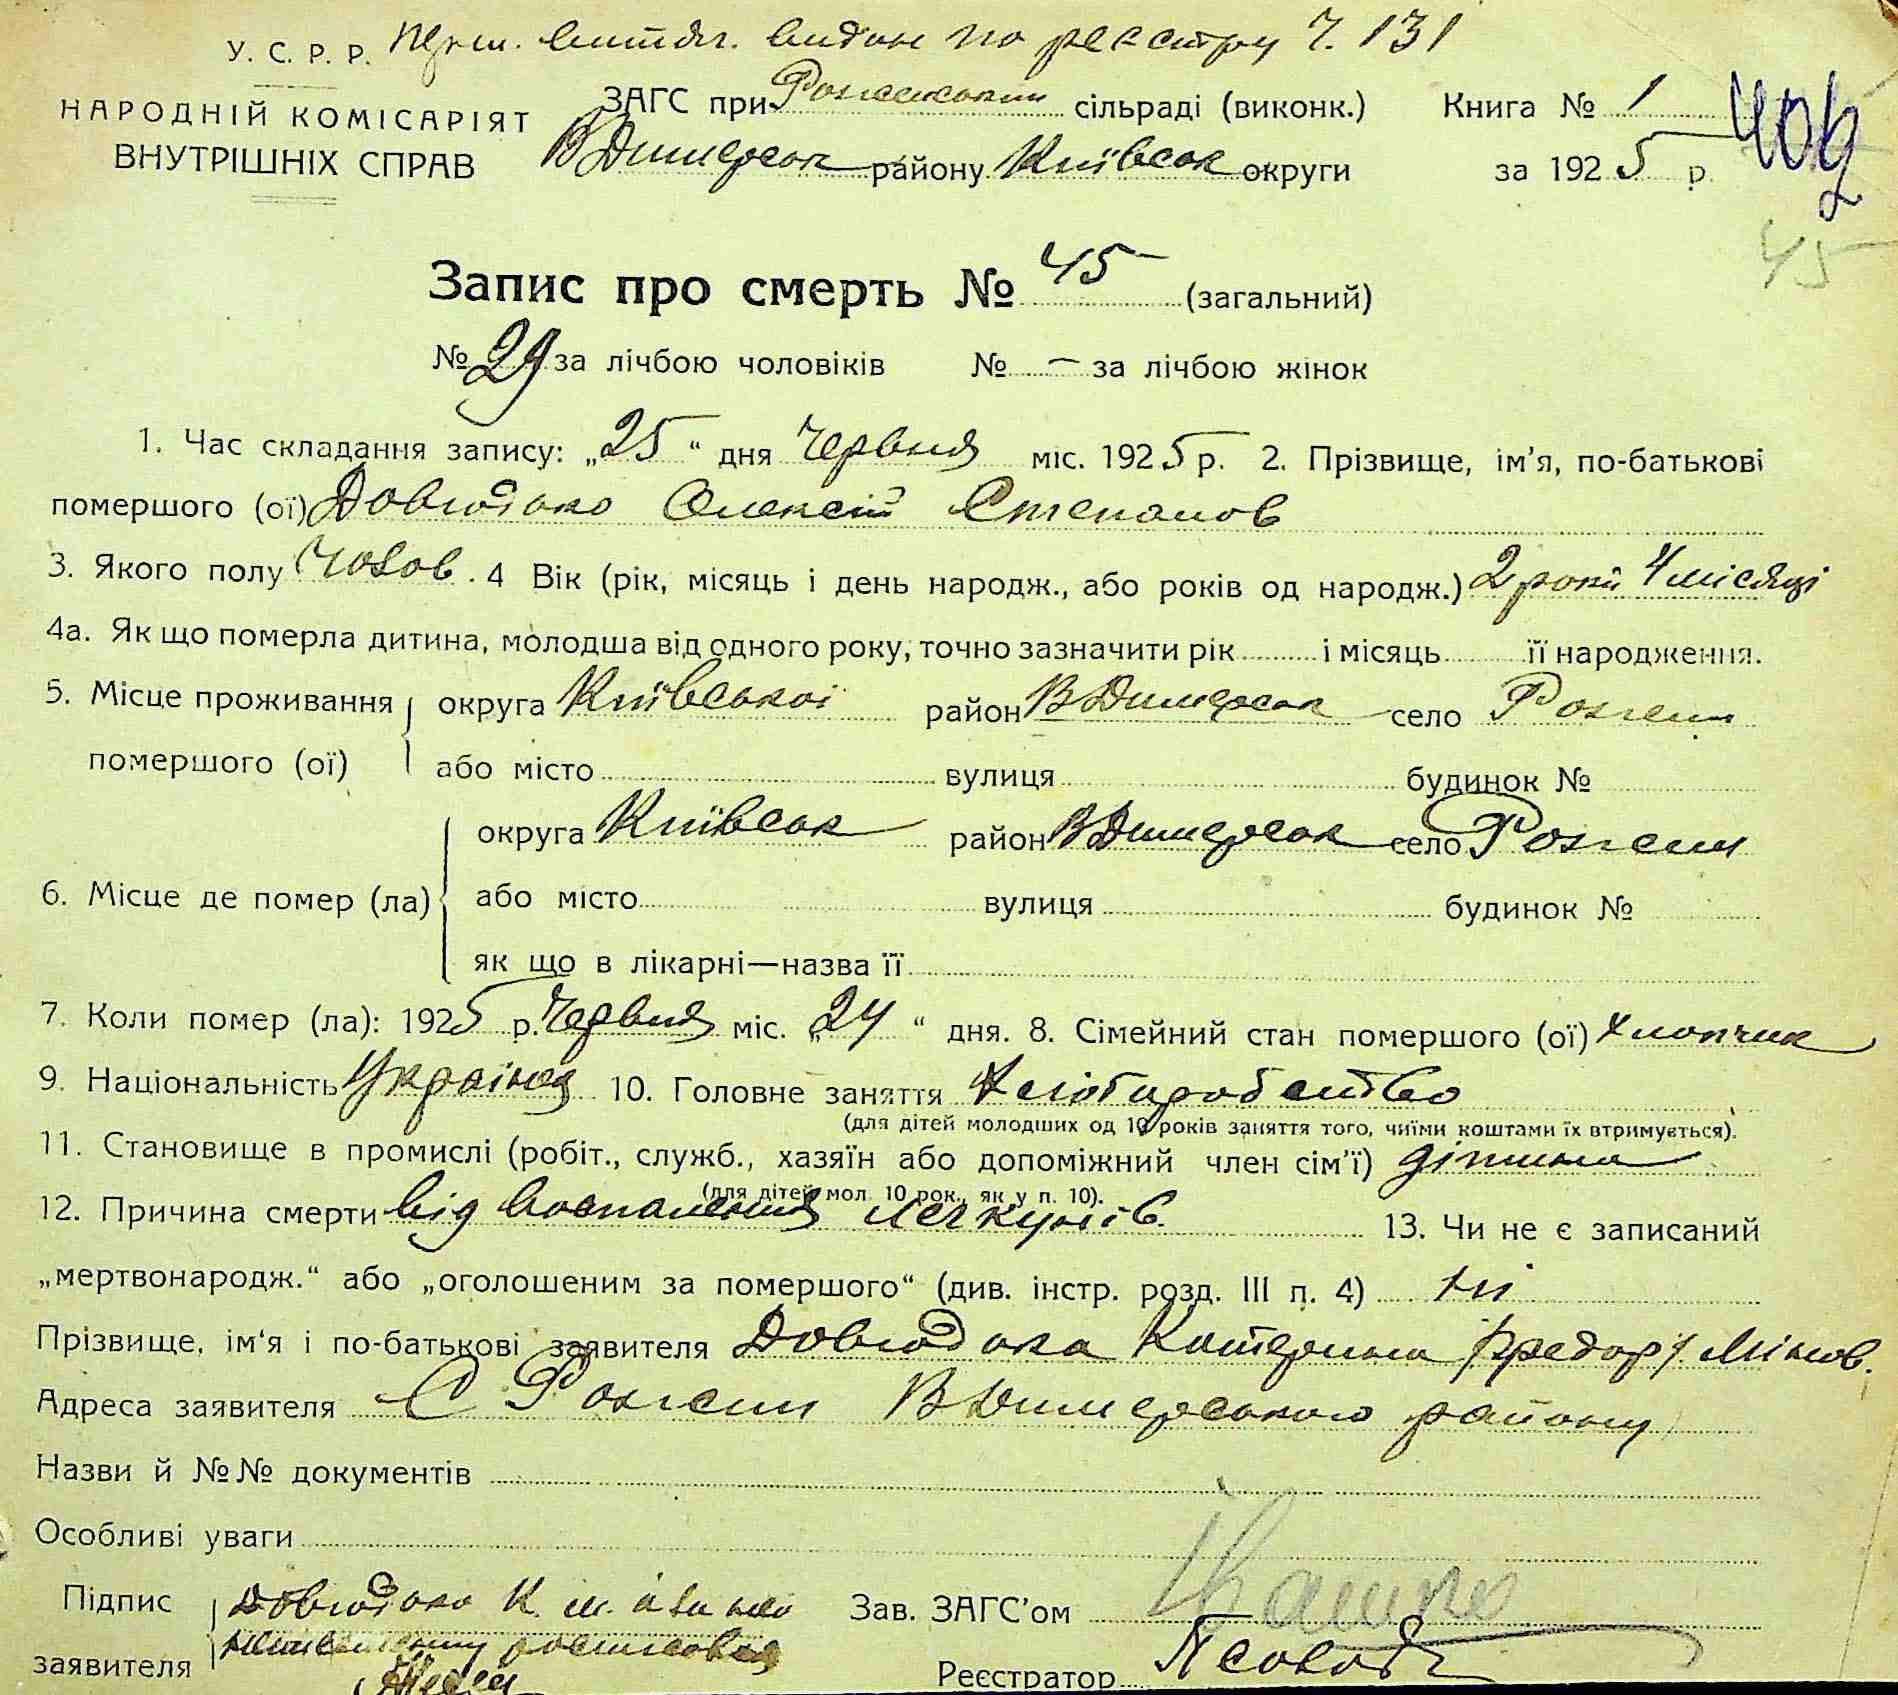 У. С. Р. Р. витяг. видан по реєстру Ч. 131
НАРОДНІЙ КОМІСАРІЯТ
ВНУТРІШНІХ СПРАВ
ЗАГС при сільраді (виконк.) Книга № 1
ВДимерськ району Київськ округи за 1925 р.
402
45
Запис про смерть № 45 (загальний)
№ 29 за лічбою чоловіків № — за лічбою жінок
1. Час складання запису: „25“ дня Червня міс. 1925 р. 2. Прізвище, ім'я, по-батькові
помершого (ої) Довгодько Олексій Степанов
3. Якого полу Чолов. 4 Вік (рік, місяць і день народж., або років од народж.) 2 роки 4 місяці
4а. Як що померла дитина, молодша від одного року, точно зазначити рік і місяць її народження.
5. Місце проживання округа Київської район ВДимерськ село Рожни
помершого (ої) або місто вулиця будинок №
округа Київськ район ВДимерськ село Рожни
6. Місце де помер (ла) або місто вулиця будинок №
як що в лікарні—назва її
7. Коли помер (ла): 1925 р. Червня міс. „24“ дня. 8. Сімейний стан помершого (ої) хлопчик
9. Національність Україн 10. Головне заняття хліборобство
(для дітей молодших од 10 років заняття того, чиїми коштами їх втримується).
11. Становище в промислі (робіт., служб., хазяїн або допоміжний член сім'ї) дітина
(для дітей мол. 10 рок., як у п. 10).
12. Причина смерти від воспаления 13. Чи не є записаний
„мертвонародж.“ або „оголошеним за помершого“ (див. інстр. розд. III п. 4) ні
Прізвище, ім'я і по-батькові заявителя Довгодька Катерина
Адреса заявителя С Рожни ВДимерського району
Назви й №№ документів
Особливі уваги
Підпис Довгодько К. Зав. ЗАГС'ом
заявителя Реєстратор